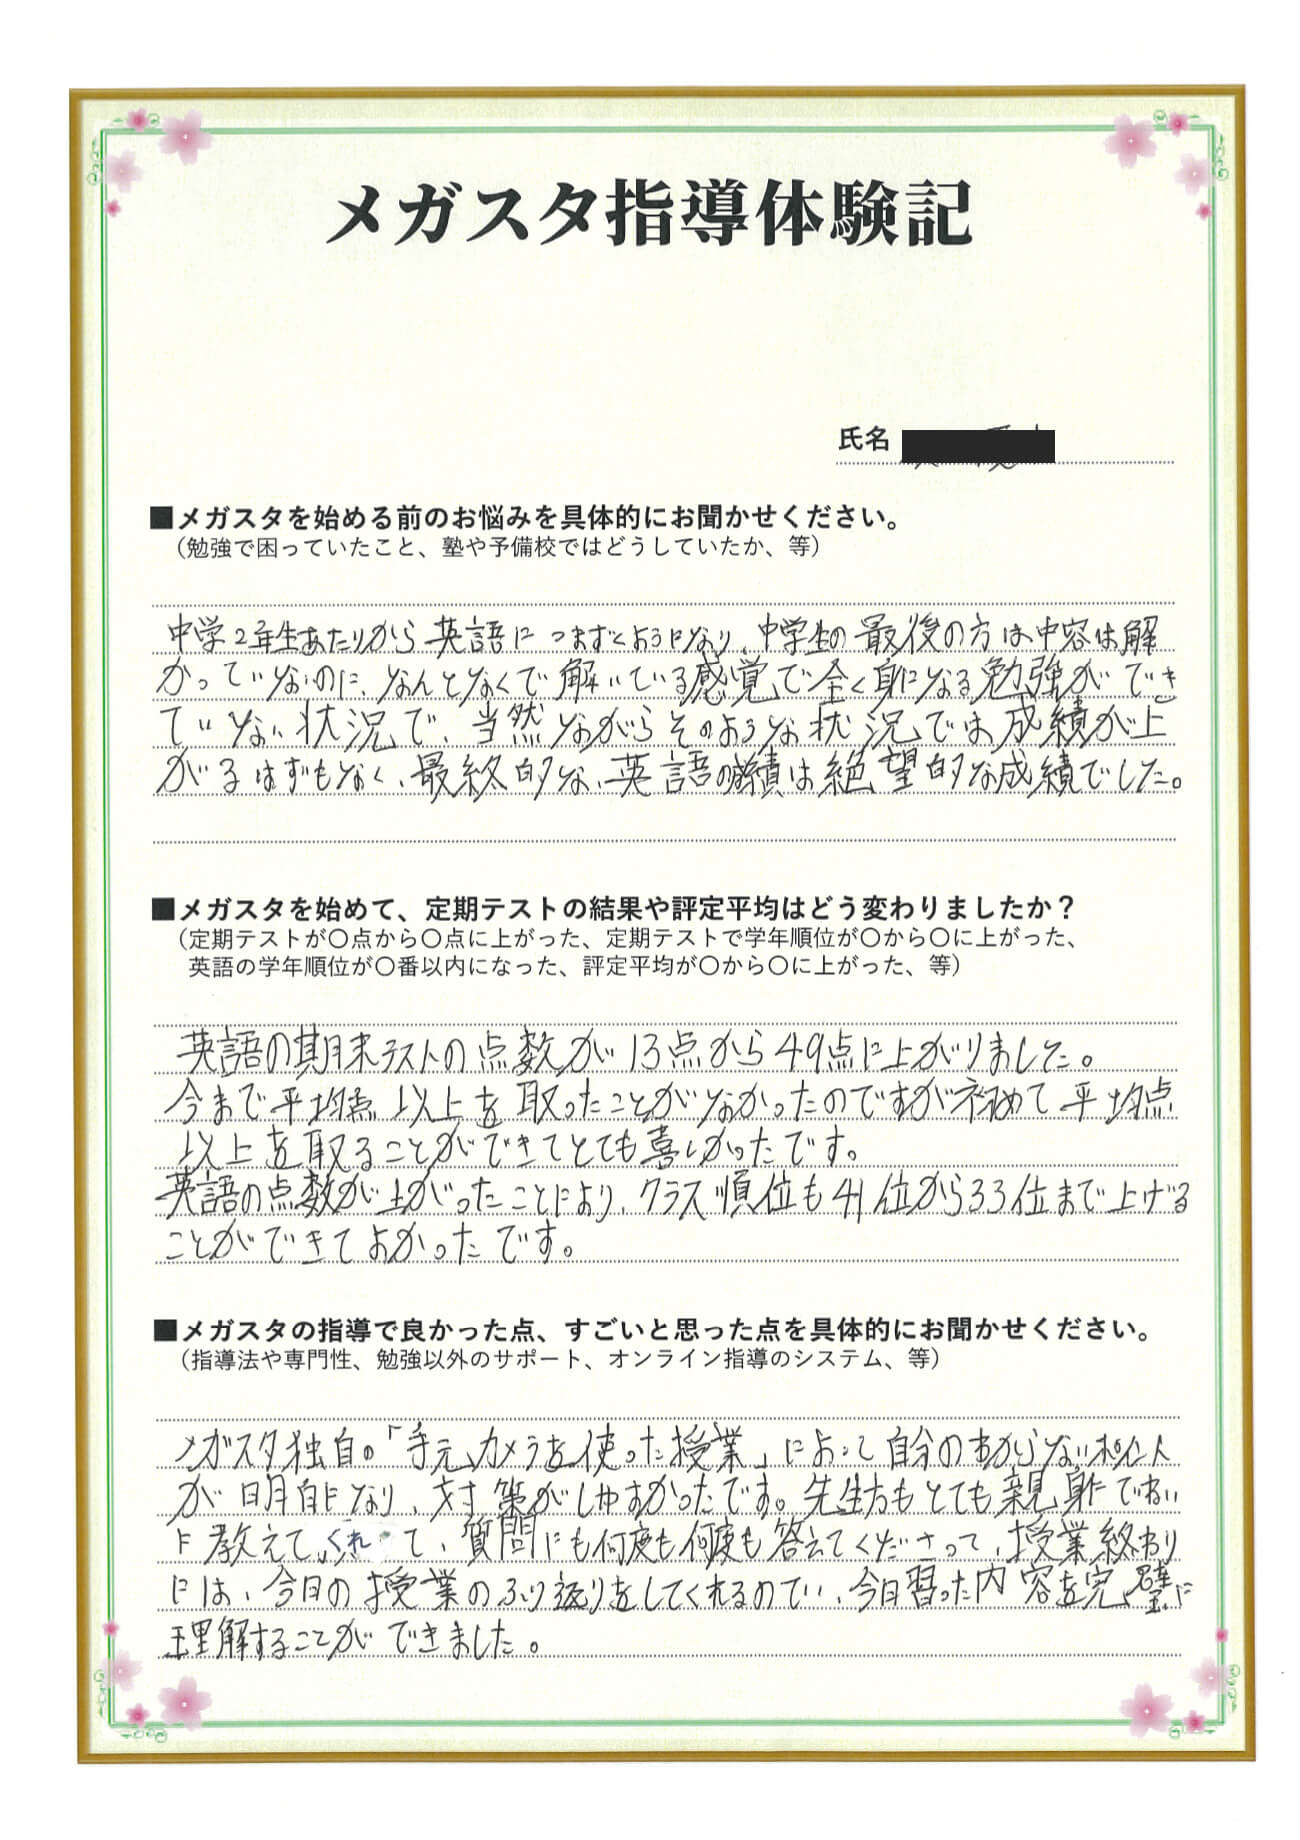 メガスタ指導体験記
氏名
■メガスタを始める前のお悩みを具体的にお聞かせください。
（勉強で困っていたこと、塾や予備校ではどうしていたか、等）
中学2年生あたりから英語につまずくようになり、中学生の最後の方は中容は解
かっていないのに、なんとなくで解いている感覚で全く身になる勉強ができ
ていない状況で、当然ながらそのような状況では成績が上
がるはずもなく、最終的な、英語の成績は絶望的な成績でした。
■メガスタを始めて、定期テストの結果や評定平均はどう変わりましたか？
（定期テストが〇点から〇点に上がった、定期テストで学年順位が〇から〇に上がった、
英語の学年順位が〇番以内になった、評定平均が〇から〇に上がった、等）
英語の期末テストの点数が13点から49点に上がりました。
今まで平均点以上を取ったことがなかったのですが初めて平均点
以上を取ることができてとても喜しかったです。
英語の点数が上がったことにより、クラス順位も41位から33位まで上げる
ことができてよかったです。
■メガスタの指導で良かった点、すごいと思った点を具体的にお聞かせください。
（指導法や専門性、勉強以外のサポート、オンライン指導のシステム、等）
メガスタ独自の「手元カメラを使った授業」によって自分のわからないポイント
が明白になり、対策がしやすかったです。先生方もとても親身にていねい
に教えてくれて、質問にも何度も何度も答えてくださって、授業終わり
には、今日の授業のふり返りをしてくれるのでい、今日習った内容を完璧に
理解することができました。